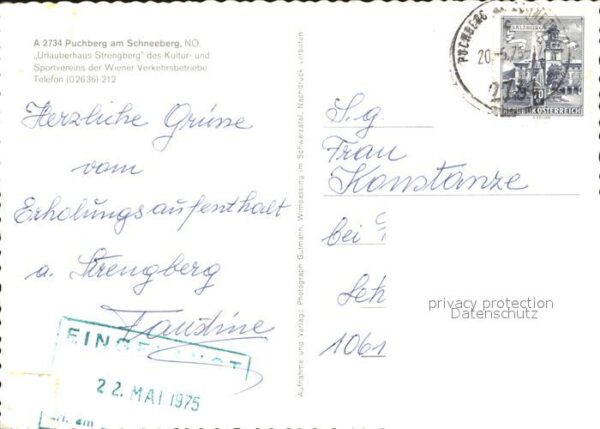 A 2734 Puchberg am Schneeberg, NÖ.
„Urlauberhaus Strengberg" des Kultur- und
Sportvereins der Wiener Verkehrsbetriebe
Telefon (02636) 212
Herzliche Grüsse
vom
Erholungsaufenthalt
a. Strengberg
Faustine
22. MAI 1975
Aufnahme und Verlag: Photograph Gutmann, Wimpassing im Schwarzatal. Nachdruck verboten
PUCHBERG
20.-5.75
70
REPUBLIK ÖSTERREICH
S.g.
Frau
Konstanze
bei
1061
privacy protection
Datenschutz